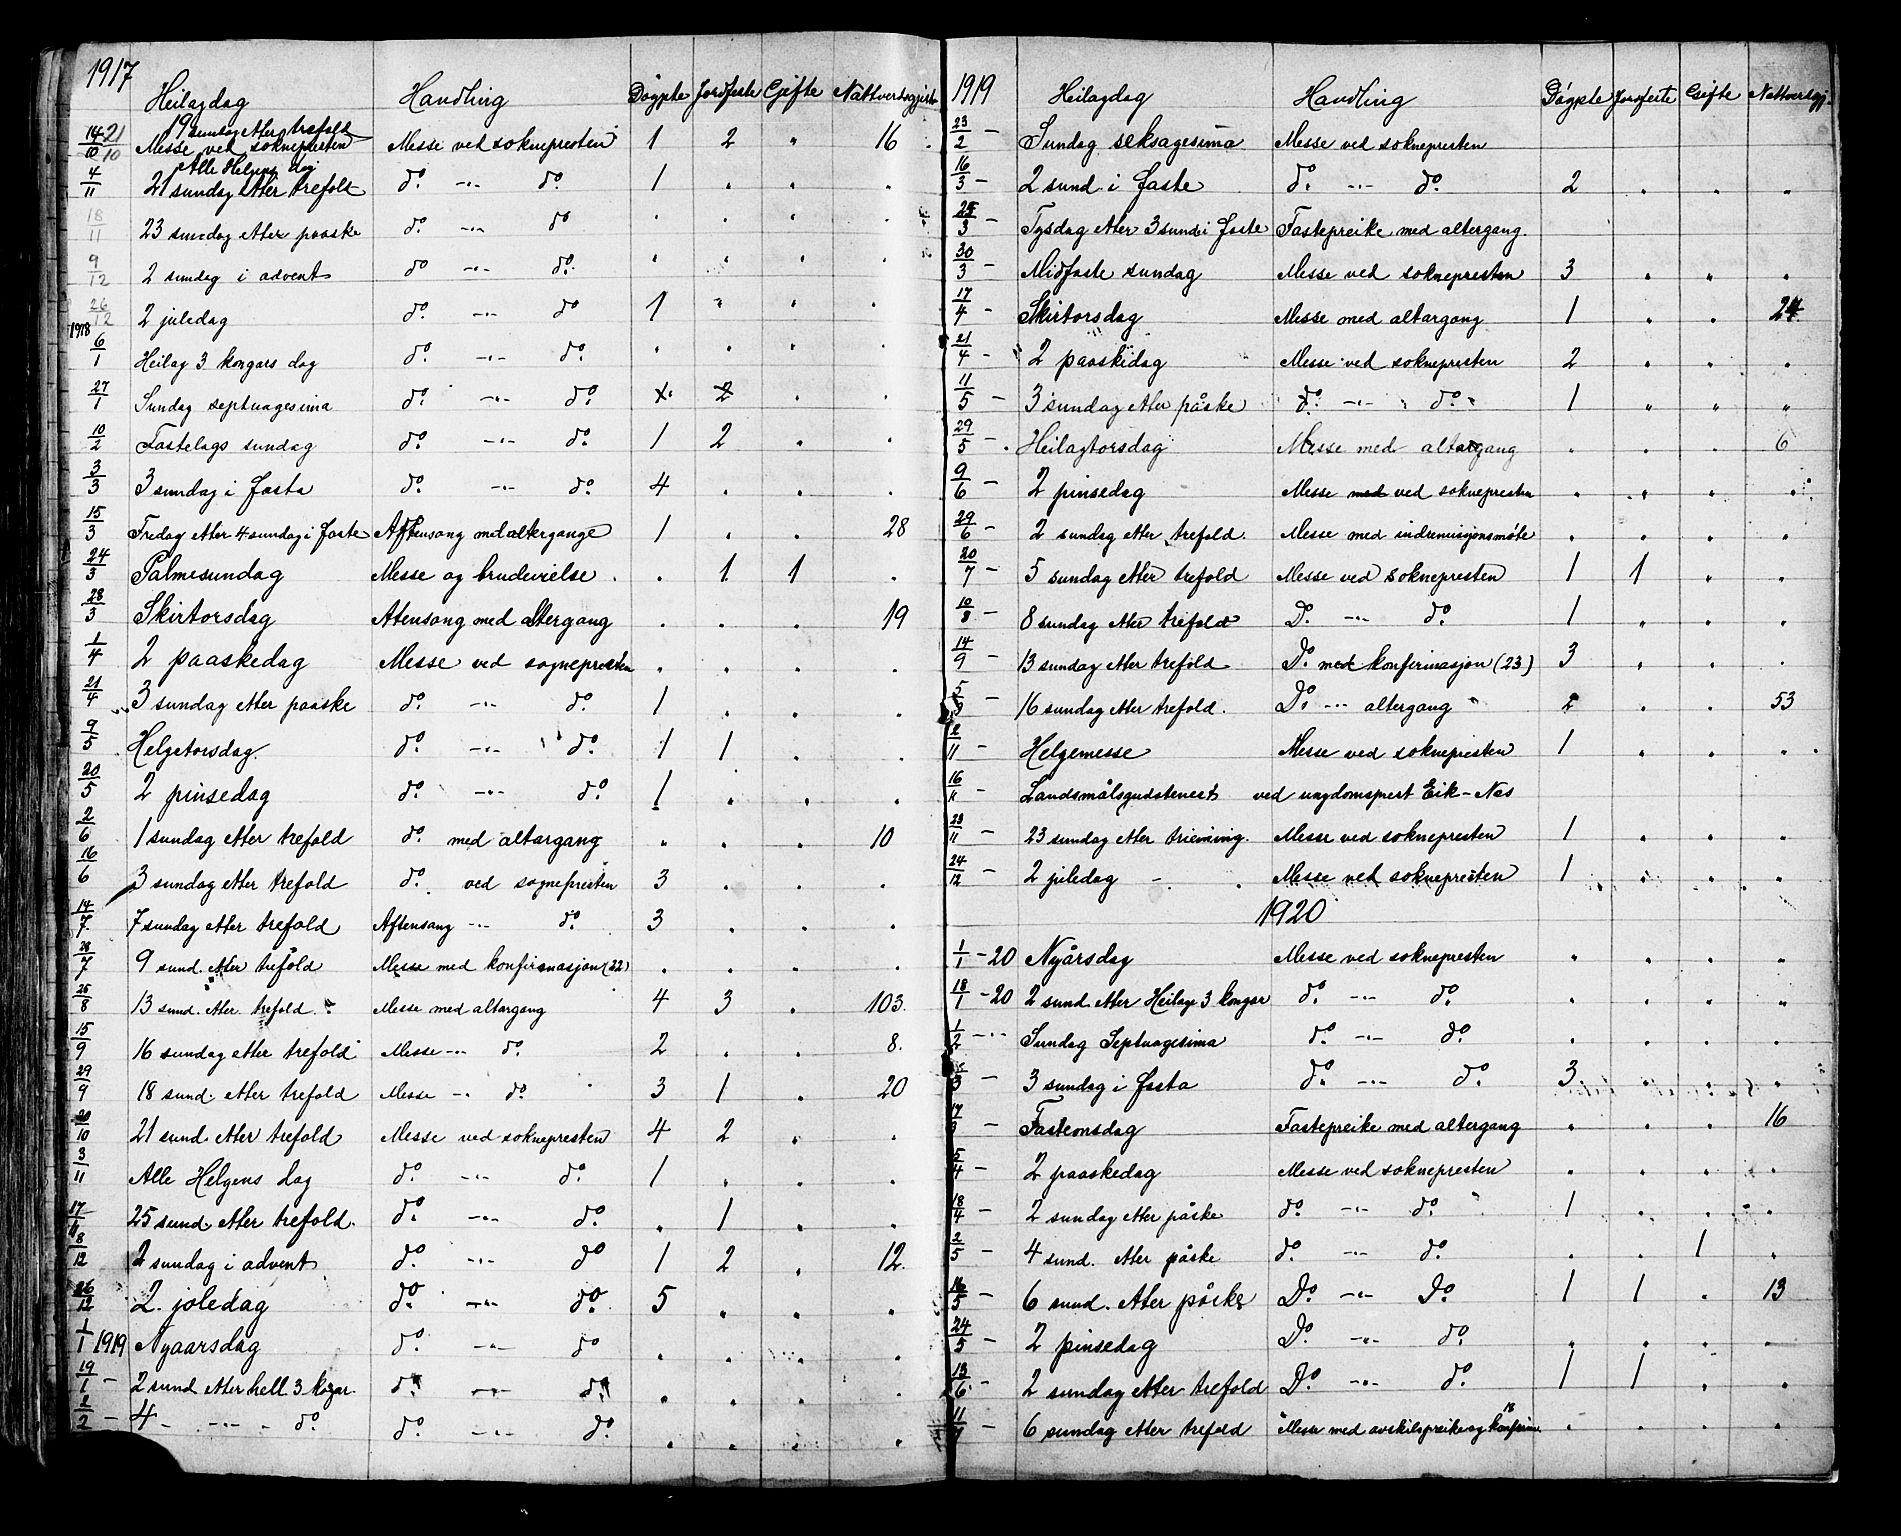 1917 Heilagdag Handling Døypte Jordfeste Gifte Nattverdsgjest
14/10 21/10 19 sundag etter trefold Messe ved soknepresten Messe ved soknepresten 1 2 " 16
Alle Helgens dag
4/11 21 sundag etter trefold do -"- do 1 " " "
18/11 23 sundag etter paaske do -"- do " " " "
9/12 2 sundag i advent do -"- do " " " "
26/12 2 juledag do -"- do 1 " " "
1918
6/1 Heilag 3 kongars dag do -"- do " " " "
27/1 Sundag septuagesima do -"- do 2 " "
10/2 Fastelags sundag do -"- do 1 2 " "
3/3 3 sundag i fasta do -"- do 4 " " "
15/3 Fredag etter 4 sundag i faste Aftensong med altergange 1 " " 28
24/3 Palmesundag Messe og brudevielse " 1 1 "
28/3 Skirtorsdag Atensong med altergang " " " 19
1/4 2 paaskedag Messe ved sognepresten " " " "
21/4 3 sundag etter paaske do -"- do 1 " " "
9/5 Helgetorsdag do -"- do 1 1 " "
20/5 2 pinsedag do -"- do 1 " " "
2/6 1 sundag etter trefold do med altargang " " " 10
16/6 3 sundag etter trefold do ved sognepresten 3 " " "
14/7 7 sundag etter trefold Aftensang -"- do 3 " " "
28/7 9 sund. etter trefold Messe med konfirmasjon (22) " " " "
25/8 13 sund. etter trefold Messe med altargang 4 3 " 103
15/9 16 sundag etter trefold Messe -"- do 2 " " 8
29/9 18 sund. etter trefold Messe -"- do 3 1 " 20
20/10 21 sund. etter trefold Messe ved soknepresten 4 2 " "
3/11 Alle Helgens dag do -"- do 1 " " "
17/11 25 sund. etter trefold do -"- do " 1 " "
8/12 2 sundag i advent do -"- do 1 2 " 12
26/12 2. joledag do -"- do 5 " " "
1/1 1919 Nyaarsdag do -"- do " " " "
19/1 - 2 sund etter hell 3 kogar do -"- do " " " "
2/2 - 4 - -"- - do do -"- do " " " "
1919 Heilagdag Handling Døypte Jordfeste Gifte Nattverdgj.
23/2 - Sundag seksagesima Messe ved soknepresten
16/3 - 2 sund. i faste do -"- do 2 " " "
25/3 - Tysdag etter 3 sund i faste Fastepreike med altergang.
30/3 - Midfaste sundag Messe ved soknepresten 3 " " "
17/4 - Skirtorsdag Messe med altargang 1 " " 24
21/4 - 2 paaskidag Messe ved soknepresten 2 " " "
11/5 - 3 sundag etter påske do -"- do 1 " " "
29/5 - Heilagtorsdag Messe med altargang " " " 6
9/6 - 2 pinsedag Messe med ved soknepresten " " " "
29/6 - 2 sundag etter trefold. Messe med indremisjonsmøte " " " "
20/7 - 5 sundag etter trefold Messe ved soknepresten 1 1 " "
10/8 - 8 sundag etter trefold Do -"- do 1 " " "
14/9 - 13 sundag etter trefold Do med konfirmasjon (23) 3 " " "
- 16 sundag etter trefold. Do -"- altergang 2 " " 53
2/11 - Helgemesse Messe ved soknepresten 1 " " "
16/11 - Landsmålsgudstenest ved ungdomsprest Eik-Nes
23/11 - 23 sundag etter Messe ved soknepresten 1 " " "
24/12 - 2 juledag - Messe ved soknepresten 1 " " "
1920
1/1 - 20 Nyårsdag Messe ved soknepresten " " " "
18/1 - 20 2 sund. etter Heilage 3 kongar do -"- do " " " "
1/2 -"- Sundag Septuagesima do -"- do " " " "
- 3 sundag i fasta do -"- do 3 " " "
17/3 - Fasteonsdag Fastepreike med altergang " " " 16
5/4 - 2 paaskedag Messe ved soknepresten " " " "
18/4 - 2 sundag etter påske do -"- do 1 " " "
2/5 - 4 sund. etter påske do -"- do " " 1 "
16/5 - 6 sund. etter påske Do -"- Do 1 1 " 13
24/5 - 2 pinsedag Do -"- do " " " "
13/6 - 2 sundag etter trefold Do -"- do 1 1 " "
11/7 - 6 sundag etter trefold Messe med avskilspreike og 18 konfirm. " " " "